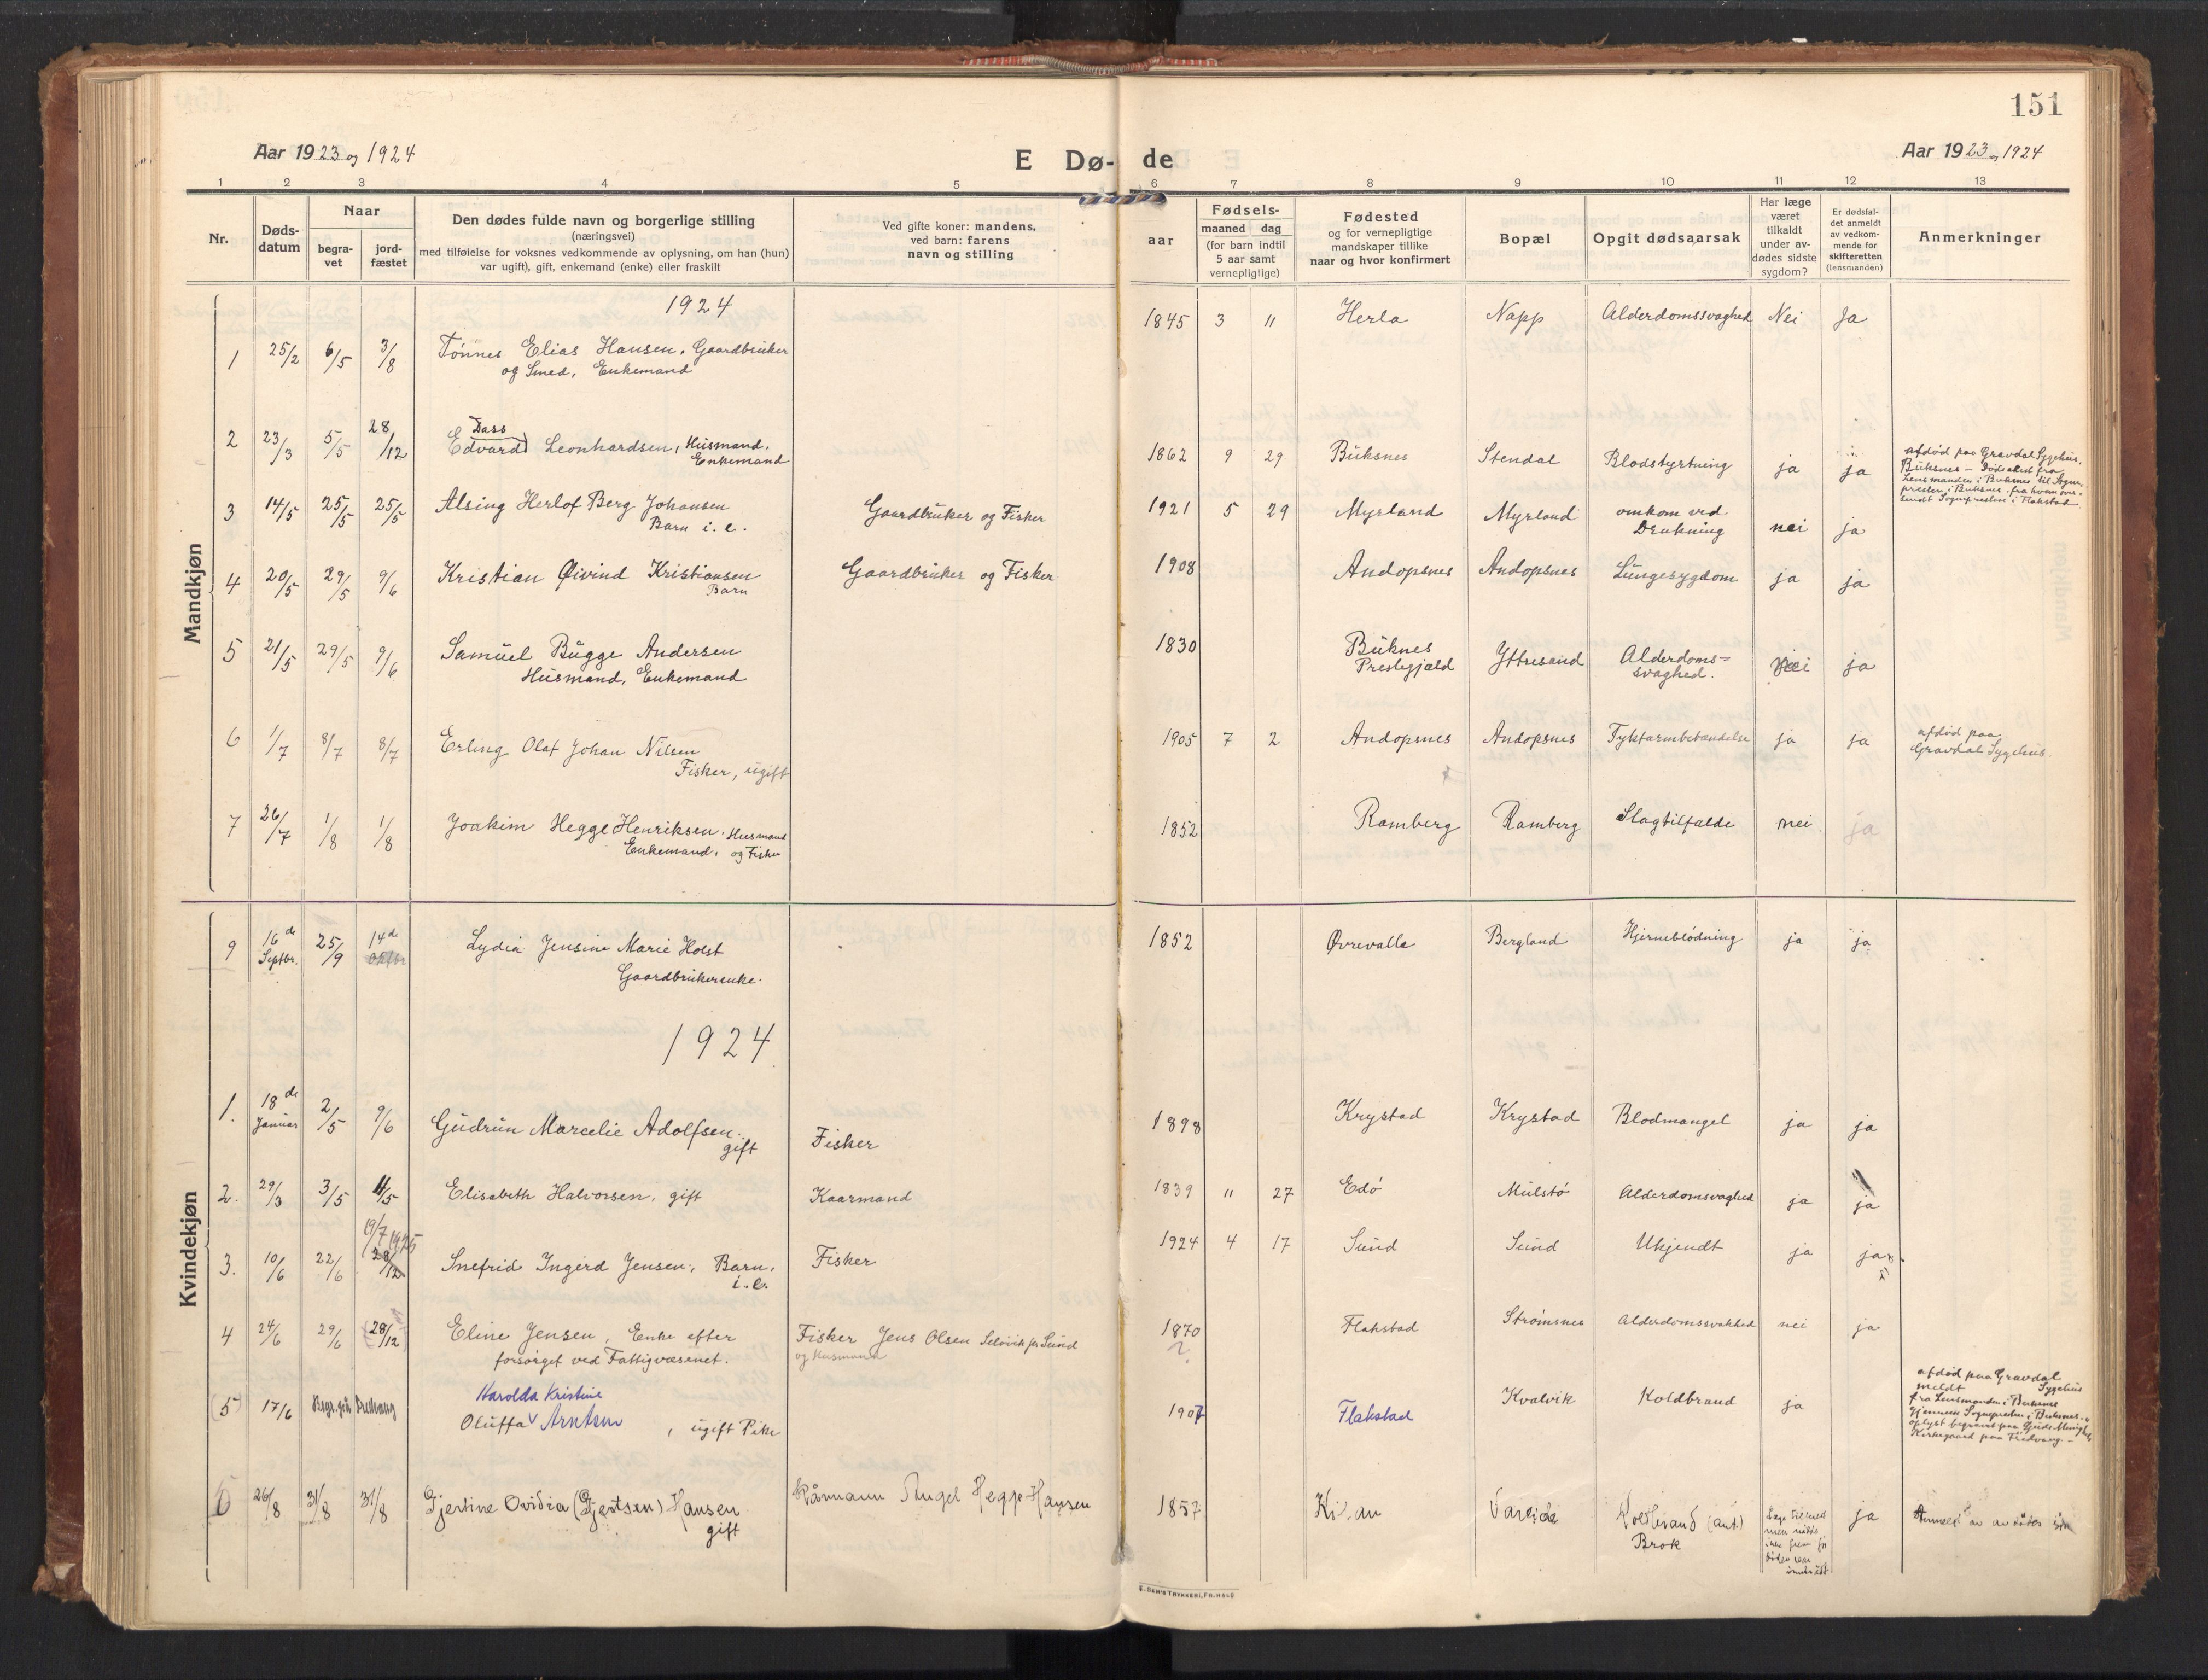 151
Aar 1923 og 1924
E Dø- de
Aar 1923 og 1924
1 2 3 4 5 6 7 8 9 10 11 12 13
Nr.
Døds-
datum
Naar
begra-
vet
jord-
fæstet
Den dødes fulde navn og borgerlige stilling
(næringsvei)
med tilføielse for voksnes vedkommende av oplysning, om han (hun)
var ugift), gift, enkemand (enke) eller fraskilt
Ved gifte koner: mandens,
ved barn: farens
navn og stilling
aar
Fødsels-
maaned dag
(for barn indtil
5 aar samt
vernepligtige)
Fødested
og for vernepligtige
mandskaper tillike
naar og hvor konfirmert
Bopæl
Opgit dødsaarsak
Har læge
været
tilkaldt
under av-
dødes sidste
sygdom?
Er dødsfal-
det anmeldt
av vedkom-
mende for
skifteretten
(lensmanden)
Anmerkninger
Mandkjøn
1924
1 25/2 6/5 3/8 Tønnes Elias Hansen, Gaardbruker 1845 3 11 Herla Napp Alderdomssvaghed Nei Ja
og Smed, Enkemand
Dass
2 23/3 5/5 28/12 Edvard Leonhardsen, Husmand, 1862 9 29 Buksnes Stendal Blodstyrtning ja ja
Enkemand
afdød paa Gravdal Sygehus,
Buksnes - Dødsattest fra
Lensmanden i Buksnes til Sogne-
presten i Buksnes, fra hvem over-
sendt Sognepresten i Flakstad.
3 14/5 25/5 25/5 Alsing Herlof Berg Johansen Gaardbruker og Fisker 1921 5 29 Myrland Myrland omkom ved nei ja
Barn i. e. Drukning
4 20/5 29/5 9/6 Kristian Øivind Kristiansen Gaardbruker og Fisker 1908 Andopsnes Andopsnes Lungesygdom ja ja
Barn
5 21/5 29/5 9/6 Samuel Bugge Andersen 1830 Buknes Yttresand Alderdoms- nei ja
Husmand, Enkemand Prestegjæld svaghed.
6 1/7 8/7 8/7 Erling Olaf Johan Nilsen 1905 7 2 Andopsnes Andopsnes Tyktarmbetændelse ja ja afdød paa
Fisker, ugift Gravdal Sygehus.
7 26/7 1/8 1/8 Joakim Hegge Henriksen, Husmand 1852 Ramberg Ramberg Slagtilfælde nei ja
Enkemand, og Fisker
Kvindekjøn
9 16de Septbr. 25/9 14d Oktbr Lydia Jensine Marie Holst 1852 Øvrevalle Bergland Hjerneblødning ja ja
Gaardbrukerenke.
1924
1. 18de Januar 2/5 9/6 Gudrun Marcelie Adolfsen. Fisker 1898 Krystad Krystad Blodmangel ja ja
gift
2. 29/3 3/5 11/5 Elisabeth Halvorsen, gift Kaarmand 1839 11 27 Edø Mulstø Alderdomsvaghed ja ja
19/7 1925
3. 10/6 22/6 28/12 Snefrid Ingerd Jensen, Barn, Fisker 1924 4 17 Sund Sund Ukjendt ja ja
i. e.
4 24/6 29/6 28/12 Eline Jensen, Enke efter Fisker Jens Olsen Selvik pr Sund 1870 Flakstad Strømsnes Alderdomssvakhed nei ja
forsørget ved Fattigvæsenet. og Husmand
Harolda Kristine
(5) 17/6 Begr. på Fredvang Oluffa Arntsen, ugift Pike 1907 Flakstad Kvalvik Koldbrand ja
afdød paa Gravdal
meldt Sygehus
fra Lensmanden i Buksnes
gjennem Sognepresten i Buksnes.
oplyst begravet paa
Kirkegaard paa Fredvang -
6 26/8 31/8 31/8 Gjertine Ovidia (Gjertsen) Hansen Kårmann Angel Hegge Hansen 1857 Vareide Koldbrand (ant.) ja
gift Brok
Læge tilkaldt
men nåtte
ikke frem før
døden var
inntrått
Anmeldt av avdødes
E. Sem's Trykkeri, Fr.hald